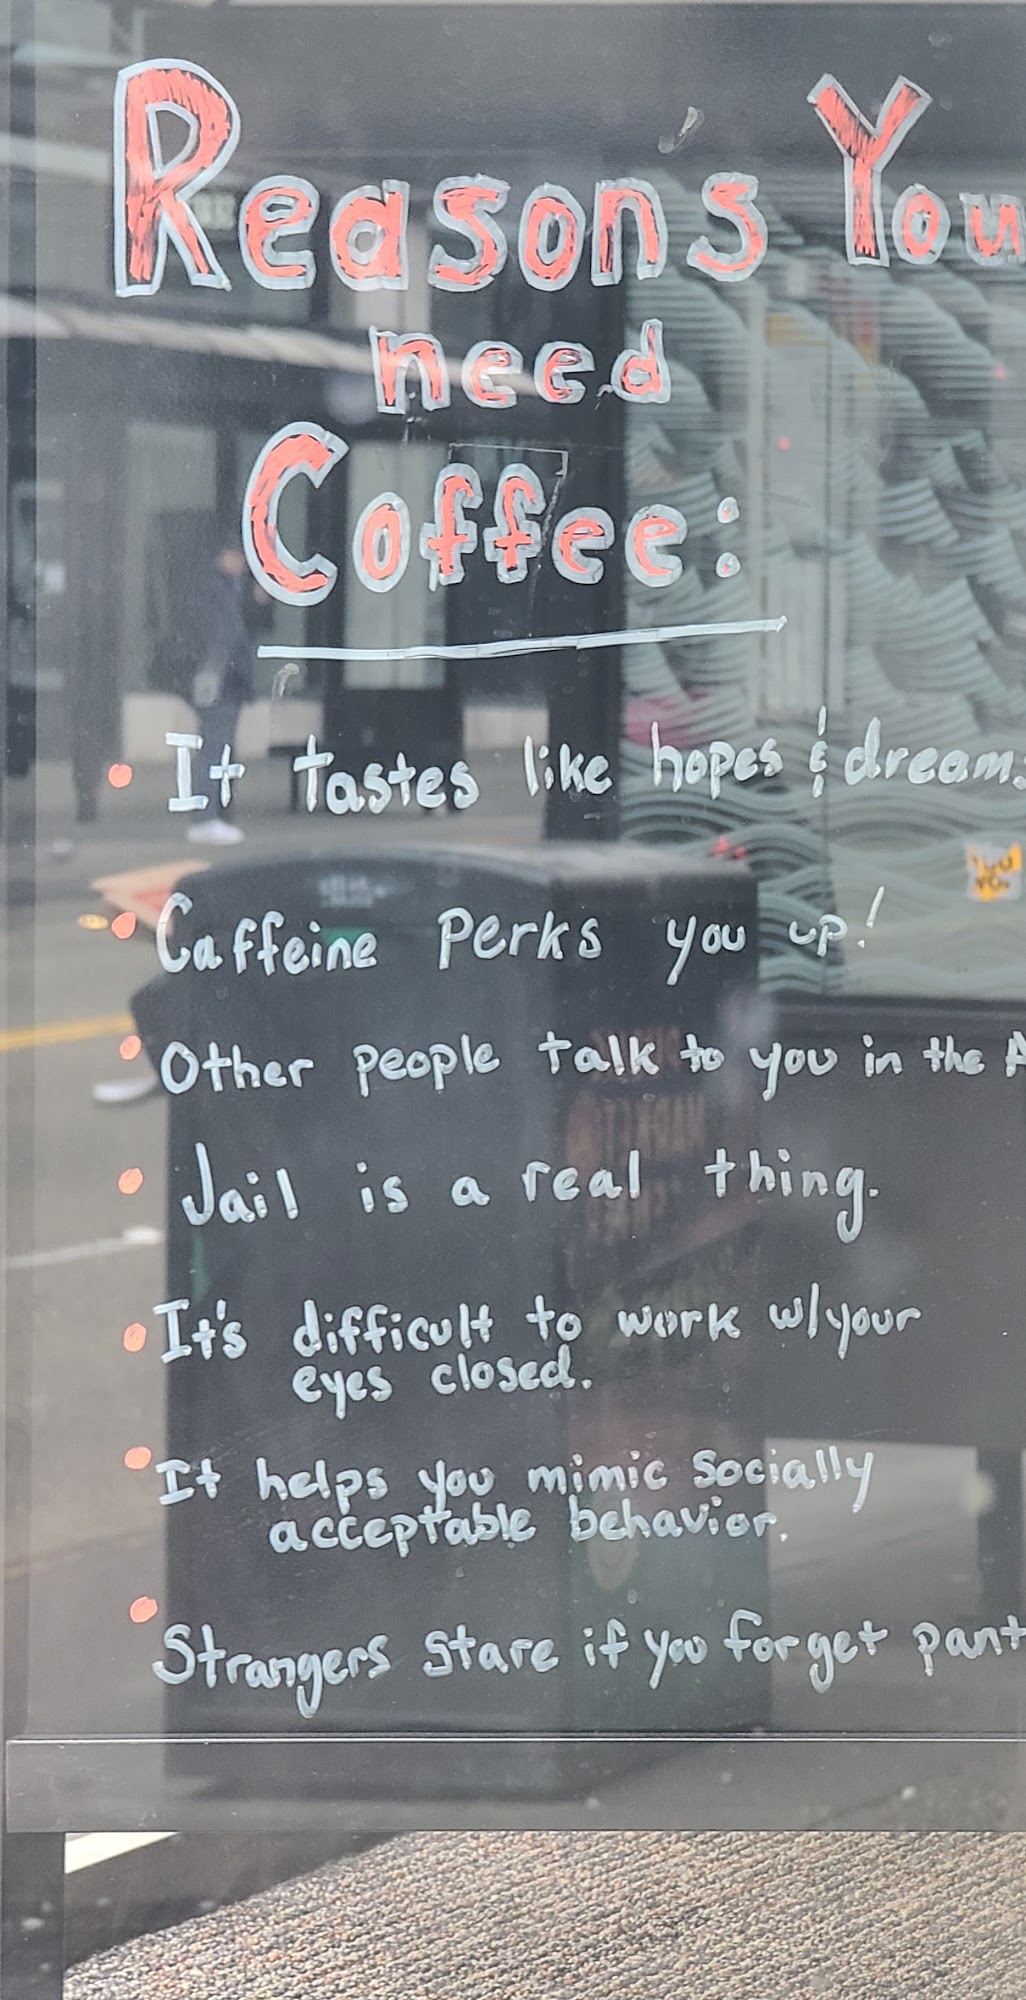 Reasons You
need
Coffee:
• It tastes like hopes & dreams
• Caffeine perks you up!
• Other people talk to you in the A
• Jail is a real thing.
• It's difficult to work w/your
eyes closed.
• It helps you mimic socially
acceptable behavior.
• Strangers stare if you forget pant